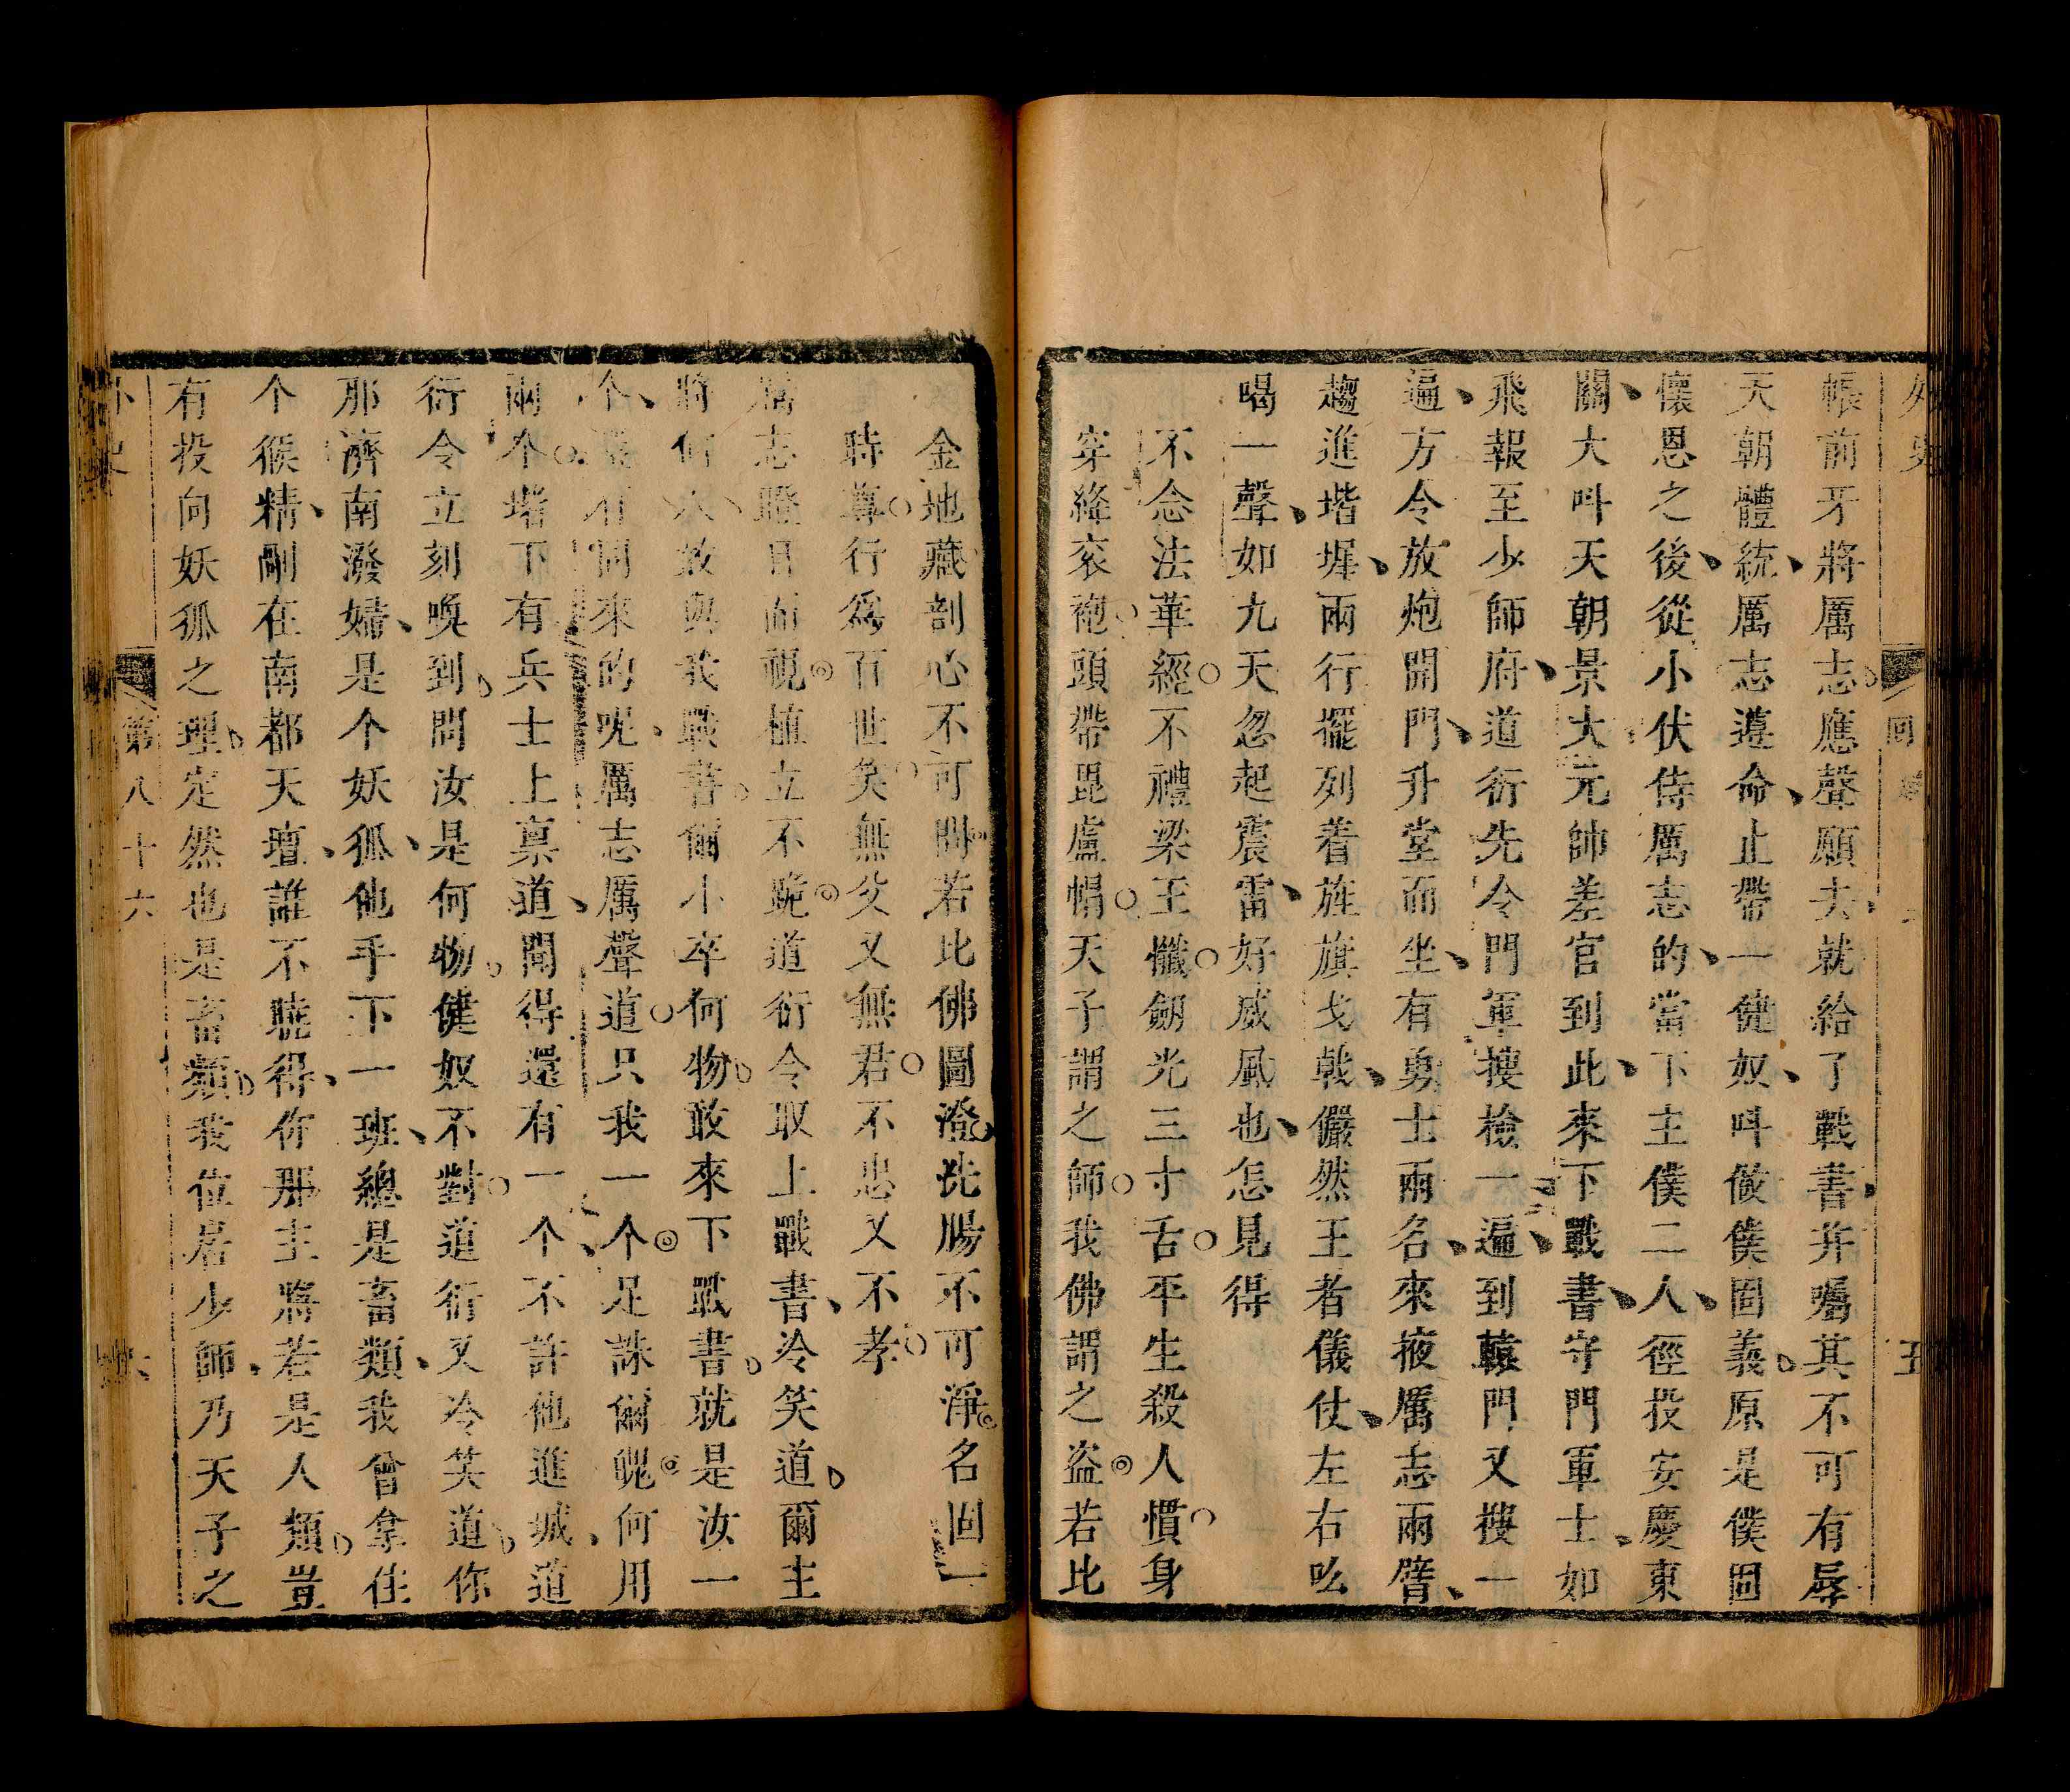 外史
回
五
帳前牙將厲志應聲願去就給了戰書并囑其不可有辱
天朝體統厲志遵命止帶一健奴呌做僕固義原是僕固
懷恩之後從小伏侍厲志的當下主僕二人徑投安慶東
關大呌天朝景大元帥差官到此來下戰書守門軍士如
飛報至少師府道衍先令門軍搜檢一遍到轅門又搜一
遍方令放炮開門升堂而坐有勇士兩名來掖厲志兩臂
趨進堦墀兩行擺列着旌旗戈戟儼然王者儀仗左右吆
喝一聲如九天忽起震雷好威風也怎見得
不念法華經不禮梁王懺劒光三寸舌平生殺人慣身
穿絳衮袍頭帶毘盧帽天子謂之師我佛謂之盜若比
金地藏剖心不可問若比佛圖澄洗腸不可淨名固一
時尊行爲百世笑無父又無君不忠又不孝
厲志瞪目而視植立不跪道衍令取上戰書冷笑道爾主
將何人敢與我戰書爾小卒何物敢來下戰書就是汝一
个還有同來的呢厲志厲聲道只我一个足誅爾魄何用
兩个堦下有兵士上禀道聞得還有一个不許他進城道
衍令立刻喚到問汝是何物健奴不對道衍又冷笑道你
那濟南潑婦是个妖狐他手下一班總是畜類我曾拿住
个猴精剛在南都天壇誰不曉得你那主將若是人類豈
有投向妖狐之理定然也是畜類我位居少師乃天子之
外史
第八十六
六